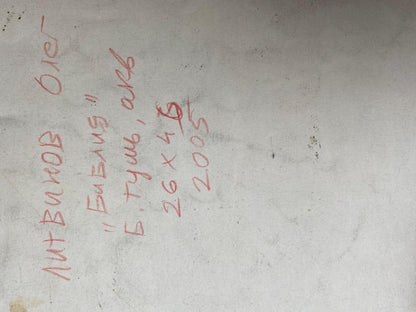 Литвинов Олег
"Библия"
Б. тушь, акв
26 х 46
2005